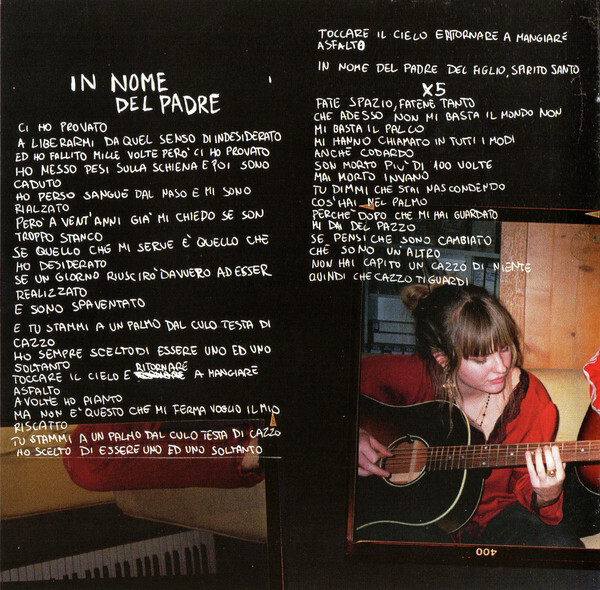 IN NOME
DEL PADRE
CI HO PROVATO
A LIBERARMI DA QUEL SENSO DI INDESIDERATO
ED HO FALLITO MILLE VOLTE PERÒ CI HO PROVATO
HO MESSO PESI SULLA SCHIENA E POI SONO
CADUTO
HO PERSO SANGUE DAL NASO E MI SONO
RIALZATO
PERÒ A VENT'ANNI GIÀ MI CHIEDO SE SON
TROPPO STANCO
SE QUELLO CHE MI SERVE È QUELLO CHE
HO DESIDERATO
SE UN GIORNO RIUSCIRÒ DAVVERO AD ESSER
REALIZZATO
E SONO SPAVENTATO
E TU STAMMI A UN PALMO DAL CULO TESTA DI
CAZZO
HO SEMPRE SCELTO DI ESSERE UNO ED UNO
SOLTANTO
TOCCARE IL CIELO E RITORNARE A MANGIARE
ASFALTO
A VOLTE HO PIANTO
MA NON È QUESTO CHE MI FERMA VOGLIO IL MIO
RISCATTO
TU STAMMI A UN PALMO DAL CULO TESTA DI CAZZO
HO SCELTO DI ESSERE UNO ED UNO SOLTANTO
TOCCARE IL CIELO E RITORNARE A MANGIARE
ASFALTO
IN NOME DEL PADRE DEL FIGLIO, SPIRITO SANTO
X5
FATE SPAZIO, FATENE TANTO
CHE ADESSO NON MI BASTA IL MONDO NON
MI BASTA IL PALCO
MI HANNO CHIAMATO IN TUTTI I MODI
ANCHE CODARDO
SON MORTO PIÙ DI 100 VOLTE
MAI MORTO INVANO
TU DIMMI CHE STAI NASCONDENDO
COS'HAI NEL PALMO
PERCHÉ DOPO CHE MI HAI GUARDATO
MI DAI DEL PAZZO
SE PENSI CHE SONO CAMBIATO
CHE SONO UN'ALTRO
NON HAI CAPITO UN CAZZO DI NIENTE
QUINDI CHE CAZZO TI GUARDI
400